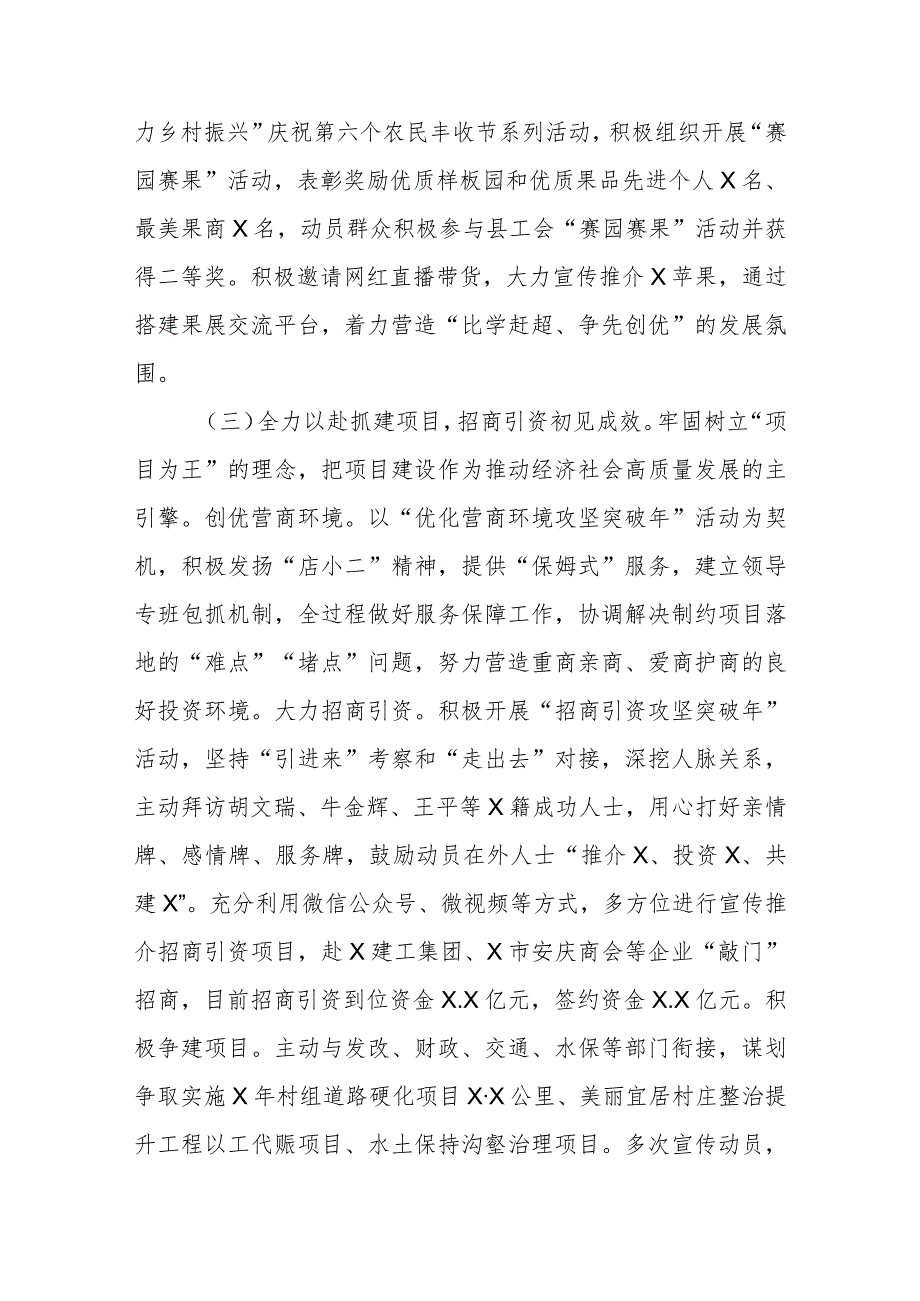 力乡村振兴”庆祝第六个农民丰收节系列活动，积极组织开展“赛
园赛果”活动，表彰奖励优质样板园和优质果品先进个人X名、
最美果商X名，动员群众积极参与县工会“赛园赛果”活动并获
得二等奖。积极邀请网红直播带货，大力宣传推介X苹果，通过
搭建果展交流平台，着力营造“比学赶超、争先创优”的发展氛
围。
（三）全力以赴抓建项目，招商引资初见成效。牢固树立“项
目为王”的理念，把项目建设作为推动经济社会高质量发展的主
引擎。创优营商环境。以“优化营商环境攻坚突破年”活动为契
机，积极发扬“店小二”精神，提供“保姆式”服务，建立领导
专班包抓机制，全过程做好服务保障工作，协调解决制约项目落
地的“难点”“堵点”问题，努力营造重商亲商、爱商护商的良
好投资环境。大力招商引资。积极开展“招商引资攻坚突破年”
活动，坚持“引进来”考察和“走出去”对接，深挖人脉关系，
主动拜访胡文瑞、牛金辉、王平等X籍成功人士，用心打好亲情
牌、感情牌、服务牌，鼓励动员在外人士“推介X、投资X、共
建X”。充分利用微信公众号、微视频等方式，多方位进行宣传推
介招商引资项目，赴X建工集团、X市安庆商会等企业“敲门”
招商，目前招商引资到位资金X.X亿元，签约资金X.X亿元。积
极争建项目。主动与发改、财政、交通、水保等部门衔接，谋划
争取实施X年村组道路硬化项目X·X公里、美丽宜居村庄整治提
升工程以工代赈项目、水土保持沟壑治理项目。多次宣传动员，